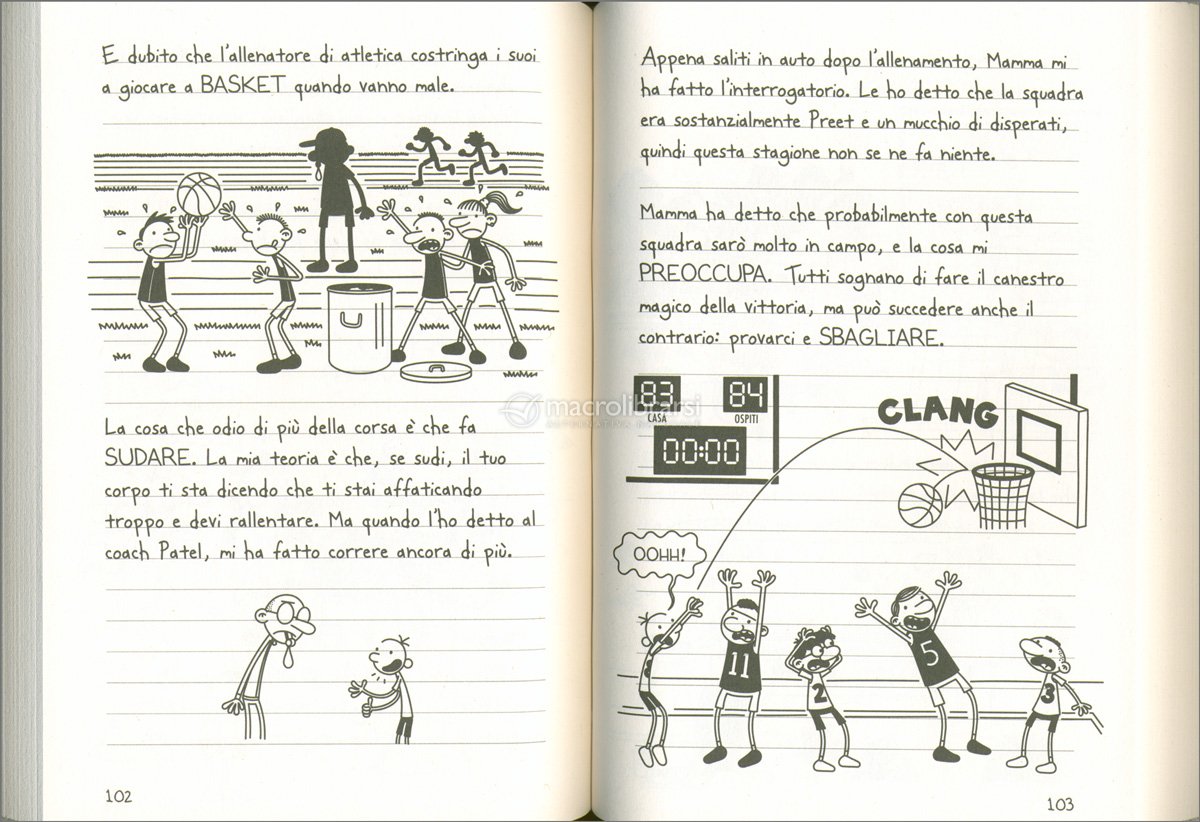 E dubito che l'allenatore di atletica costringa i suoi
a giocare a BASKET quando vanno male.
La cosa che odio di più della corsa è che fa
SUDARE. La mia teoria è che, se sudi, il tuo
corpo ti sta dicendo che ti stai affaticando
troppo e devi rallentare. Ma quando l'ho detto al
coach Patel, mi ha fatto correre ancora di più.
102
Appena saliti in auto dopo l'allenamento, Mamma mi
ha fatto l'interrogatorio. Le ho detto che la squadra
era sostanzialmente Preet e un mucchio di disperati,
quindi questa stagione non se ne fa niente.
Mamma ha detto che probabilmente con questa
squadra sarò molto in campo, e la cosa mi
PREOCCUPA. Tutti sognano di fare il canestro
magico della vittoria, ma può succedere anche il
contrario: provarci e SBAGLIARE.
83 84
CASA OSPITI
00:00
CLANG
OOHH!
11
2
5
3
103
macrolibrarsi